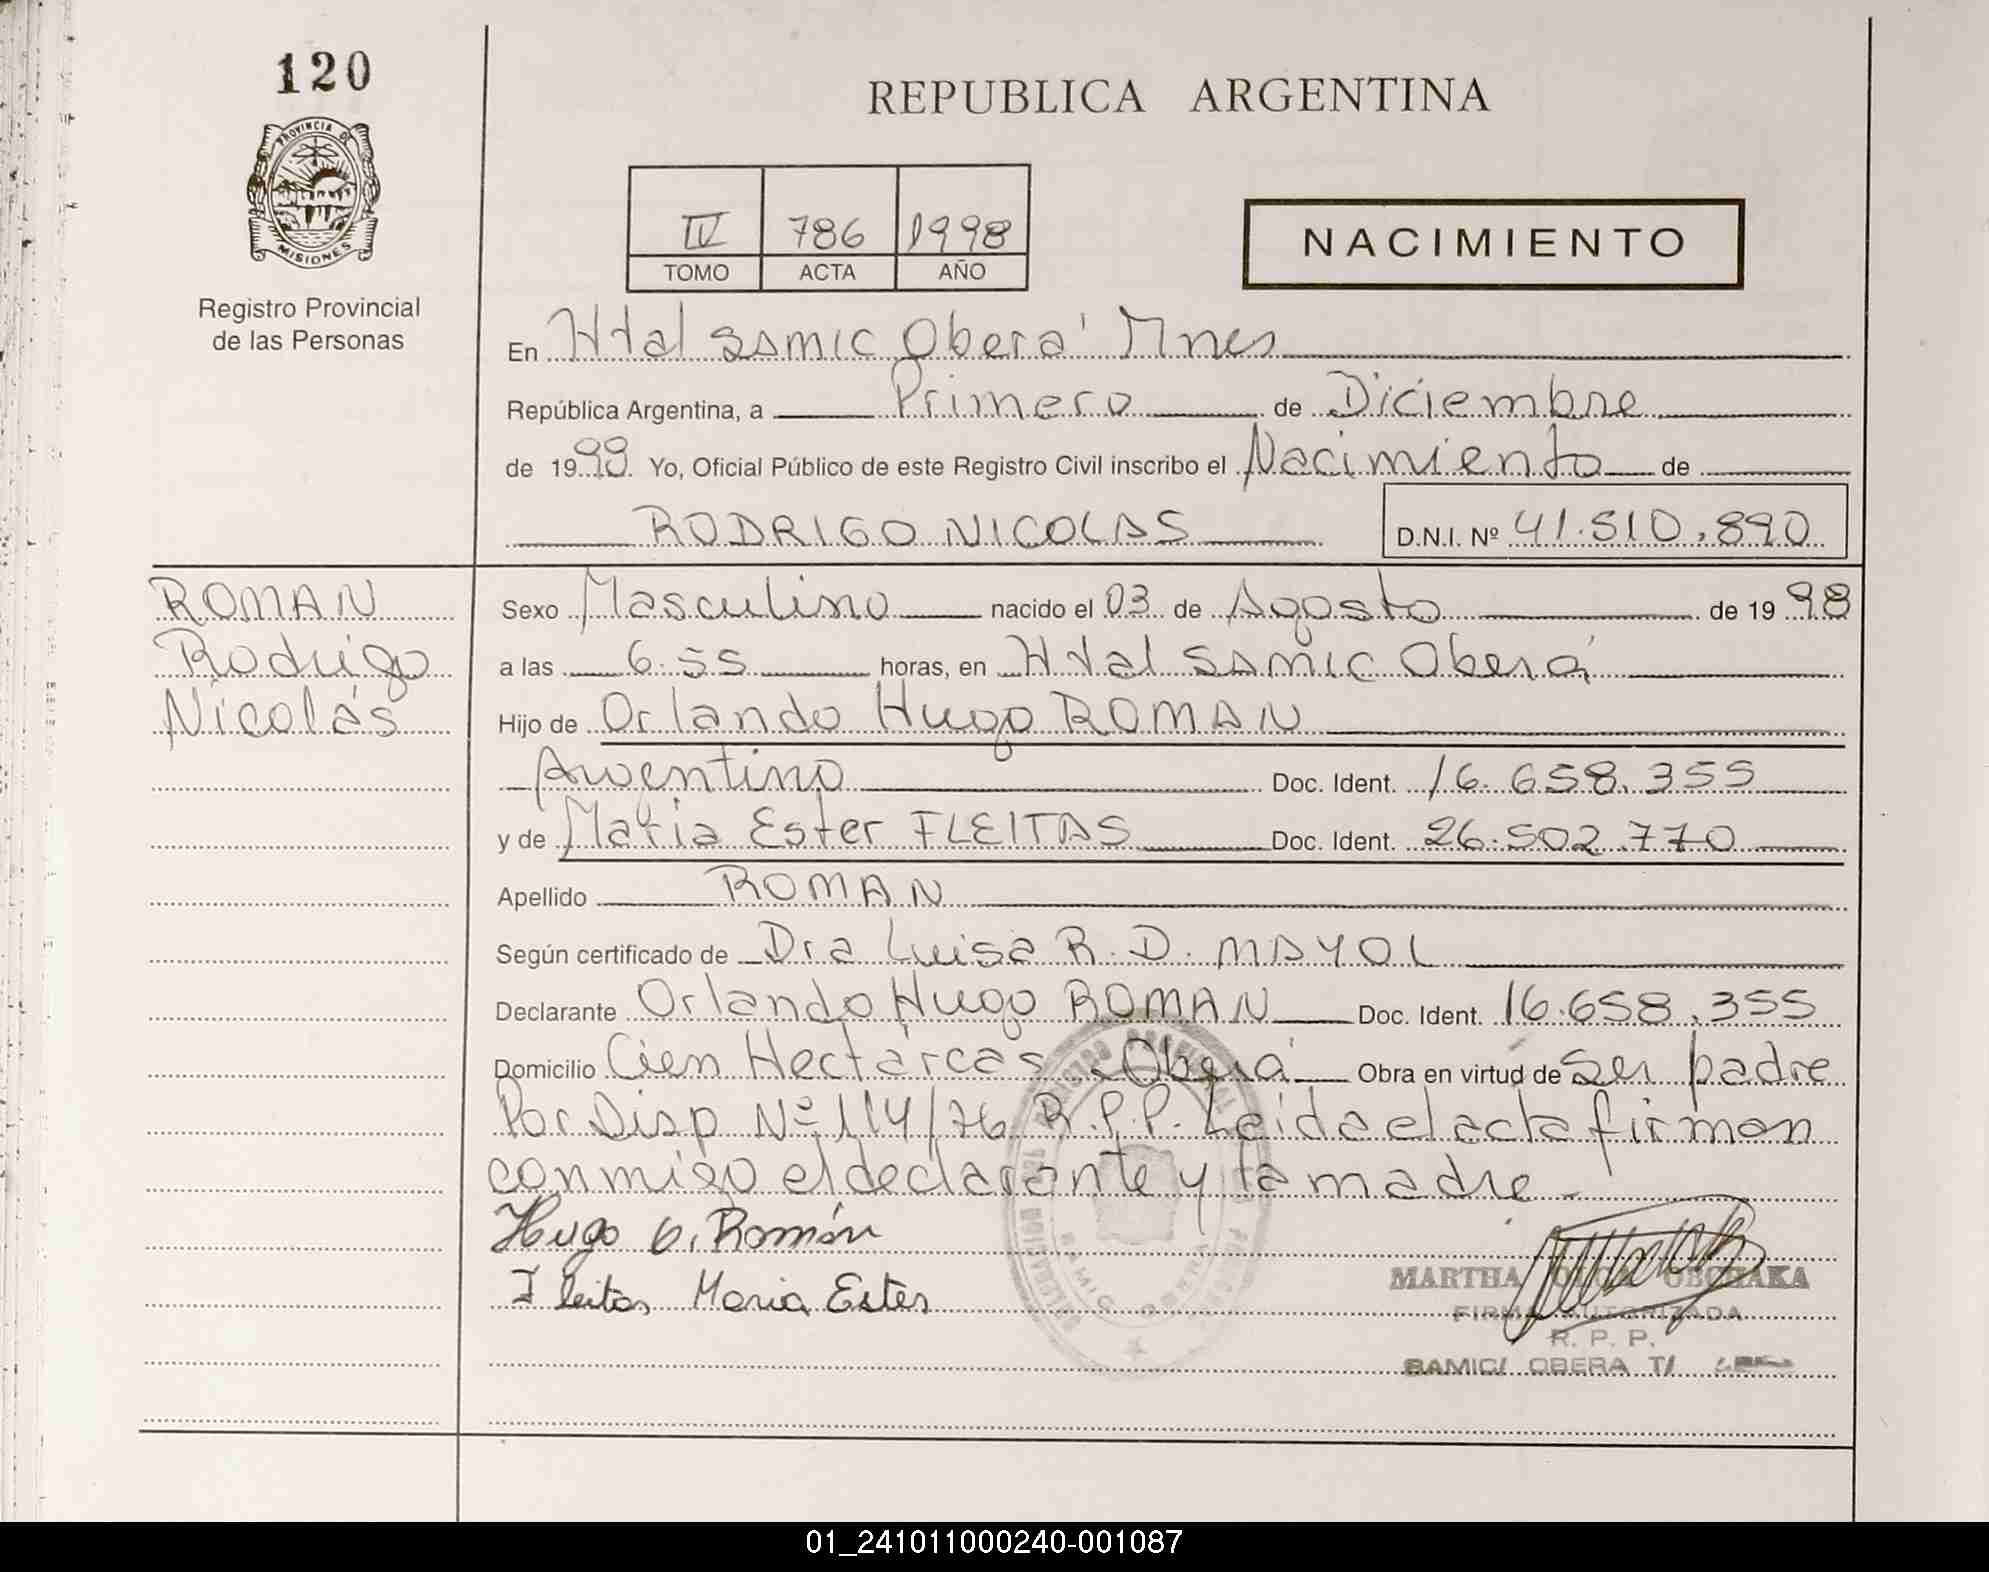 120
PROVINCIA DE
MISIONES
Registro Provincial
de las Personas
REPUBLICA ARGENTINA
IV 786 1998
TOMO ACTA AÑO
NACIMIENTO
En Htal SAMIC Oberá Mnes
República Argentina, a Primero de Diciembre
de 1998. Yo, Oficial Público de este Registro Civil inscribo el Nacimiento de
RODRIGO NICOLAS D.N.I. Nº 41.510.890
ROMAN
Rodrigo
Nicolás
Sexo Masculino nacido el 03 de Agosto de 1998
a las 6:55 horas, en Htal SAMIC Oberá
Hijo de Orlando Hugo ROMAN
Argentino Doc. Ident. 16.658.355
y de María Ester FLEITAS Doc. Ident. 26.502.770
Apellido ROMAN
Según certificado de Dra Luisa R. D. MAYOL
Declarante Orlando Hugo ROMAN Doc. Ident. 16.658.355
Domicilio Cien Hectárcas Oberá Obra en virtud de ser padre
Por Disp Nº 114/76 R.P.P. Leida el acta firman
conmigo el declarante y la madre.
Hugo O. Román
Fleitas Maria Ester
MARTHA OLGA
FIRMA AUTORIZADA
R. P. P.
SAMIC/ OBERA T/
01_241011000240-001087